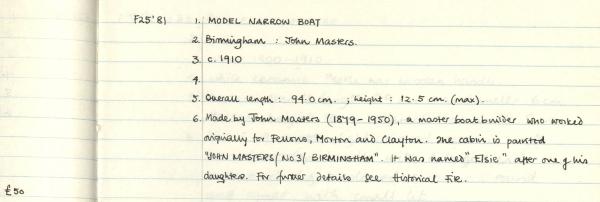 F25'81 1. MODEL NARROW BOAT
2. Birmingham : John Masters.
3. c. 1910
4.
5. Overall length : 94.0 cm. ; height : 12.5 cm. (max).
6. Made by John Masters (1879-1950), a master boatbuilder who worked
originally for Fellows, Morton and Clayton. The cabin is painted
"JOHN MASTERS/ NO 3/ BIRMINGHAM". It was named "Elsie" after one of his
daughters. For further details see Historical File.
£50